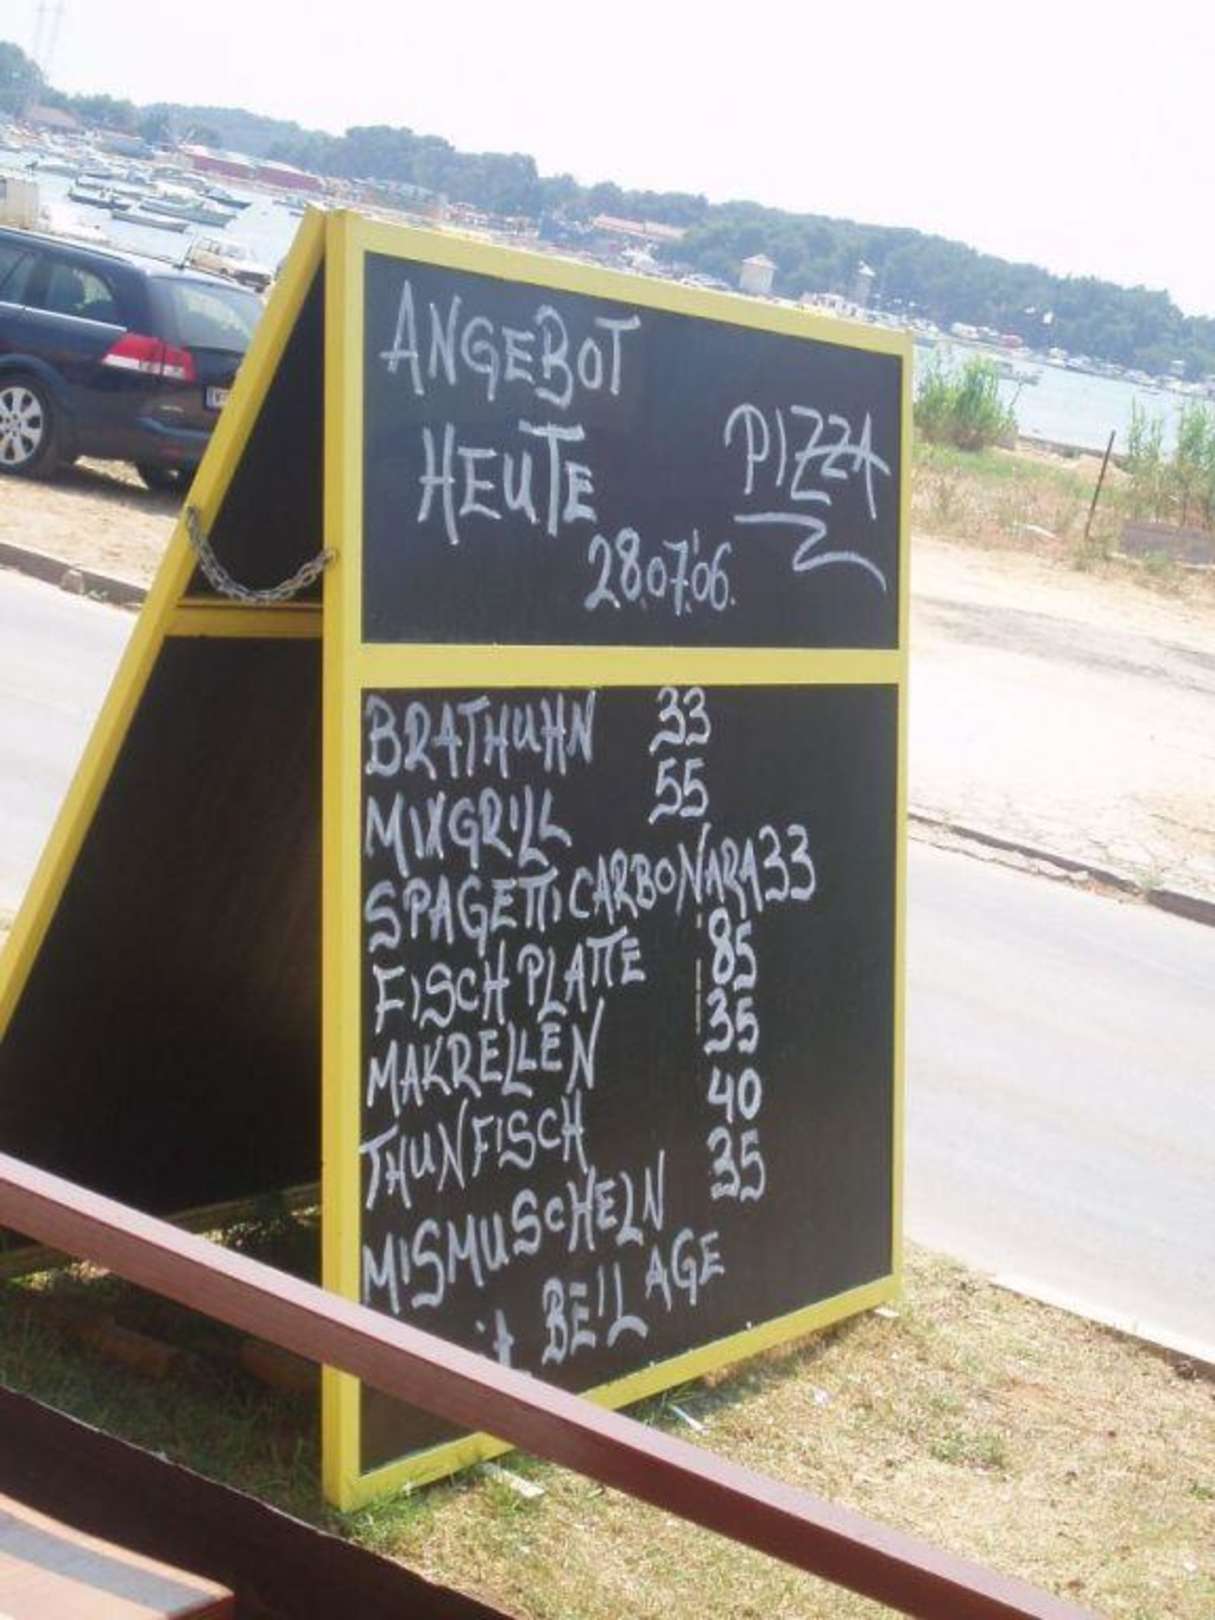 ANGEBOT
HEUTE
PIZZA
28.07.'06.
BRATHUHN 33
MIXGRILL 55
SPAGETTI CARBONARA 33
FISCHPLATTE 85
MAKRELLEN 35
THUNFISCH 40
MISMUSCHELN 35
BEILAGE